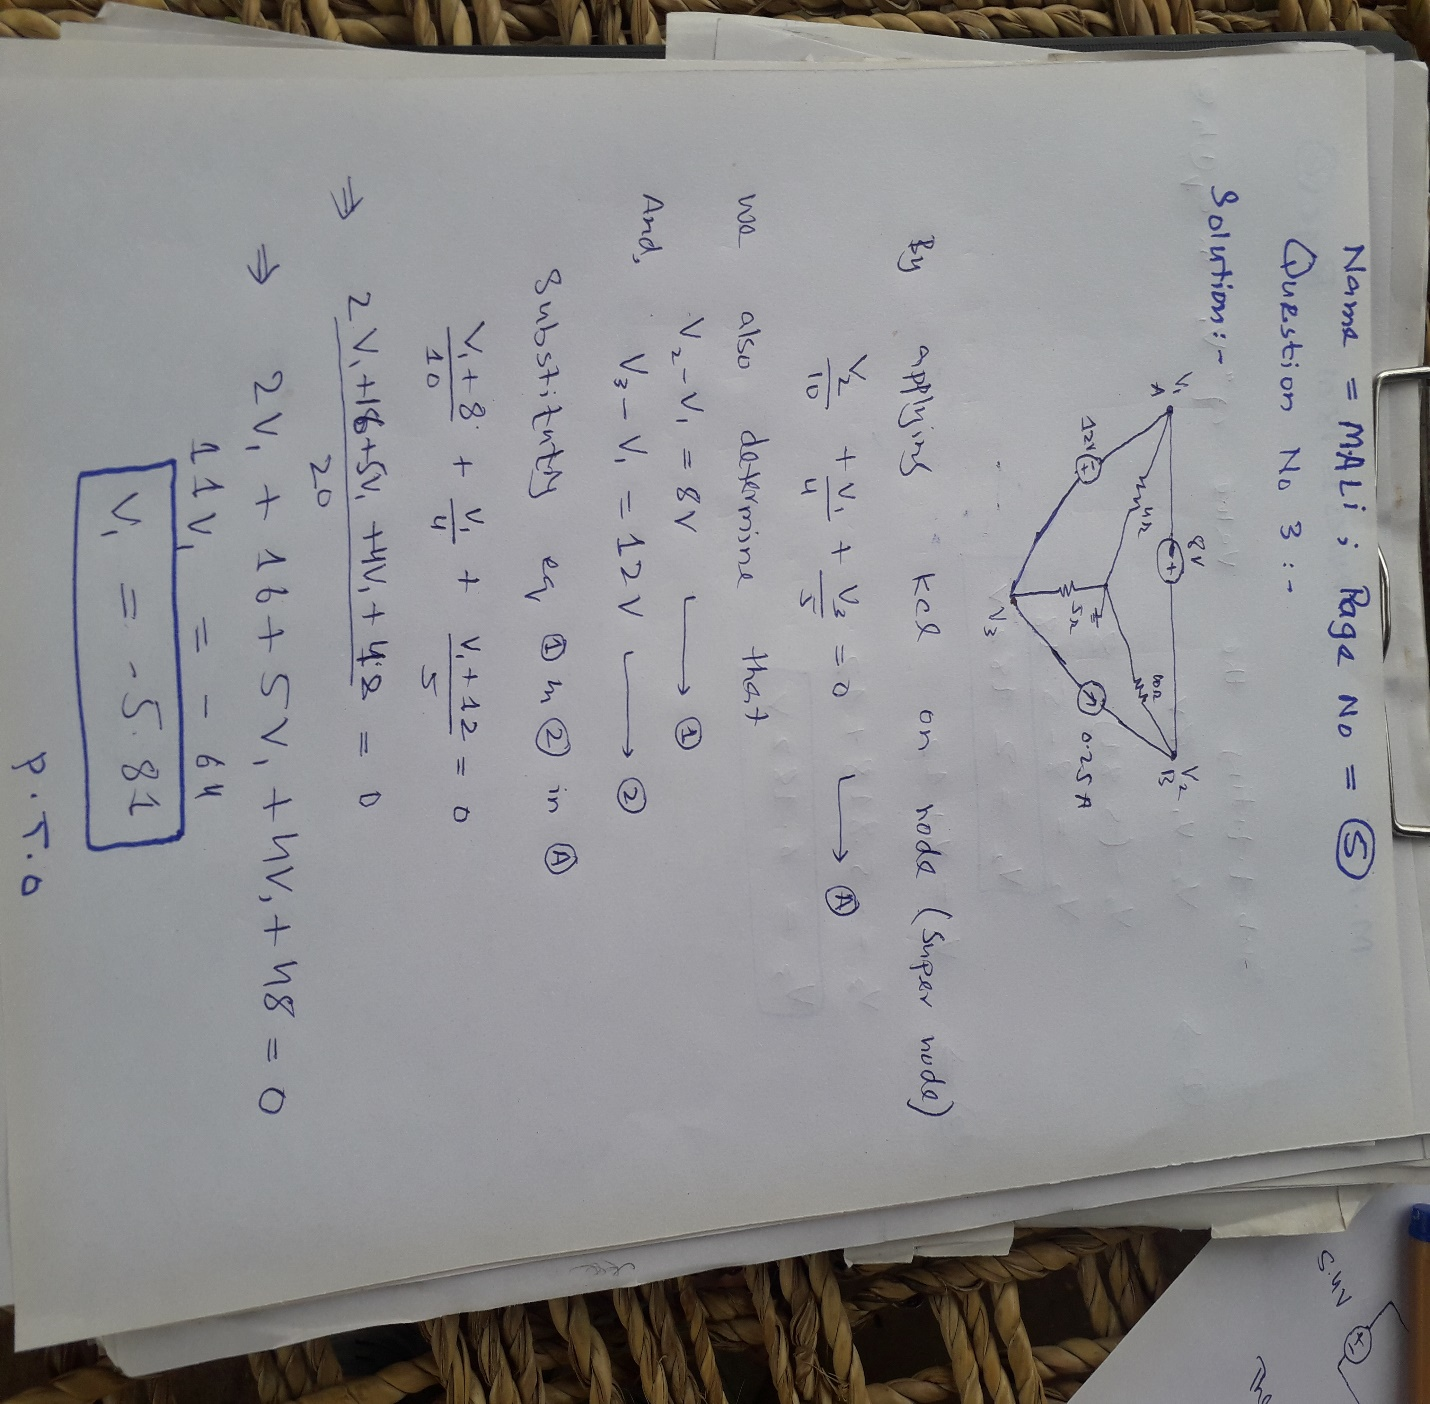 Name = MALi ; Page No = 5
Question No 3 :-
Solution:-
V₁ 8V V₂
A - + B
4Ω 10Ω
12V + 5Ω 0.25A
V₃
By applying KCL on node (super node)
V₂/10 + V₁/4 + V₃/5 = 0 → A
We also determine that
V₂ - V₁ = 8V → 1
And, V₃ - V₁ = 12V → 2
Substituty eq 1 2 in A
V₁+8/10 + V₁/4 + V₁+12/5 = 0
⇒ 2V₁+16+5V₁+4V₁+48/20 = 0
⇒ 2V₁ + 16 + 5V₁ + 4V₁ + 48 = 0
11V₁ = - 64
V₁ = -5.81
P.T.O
5.4V